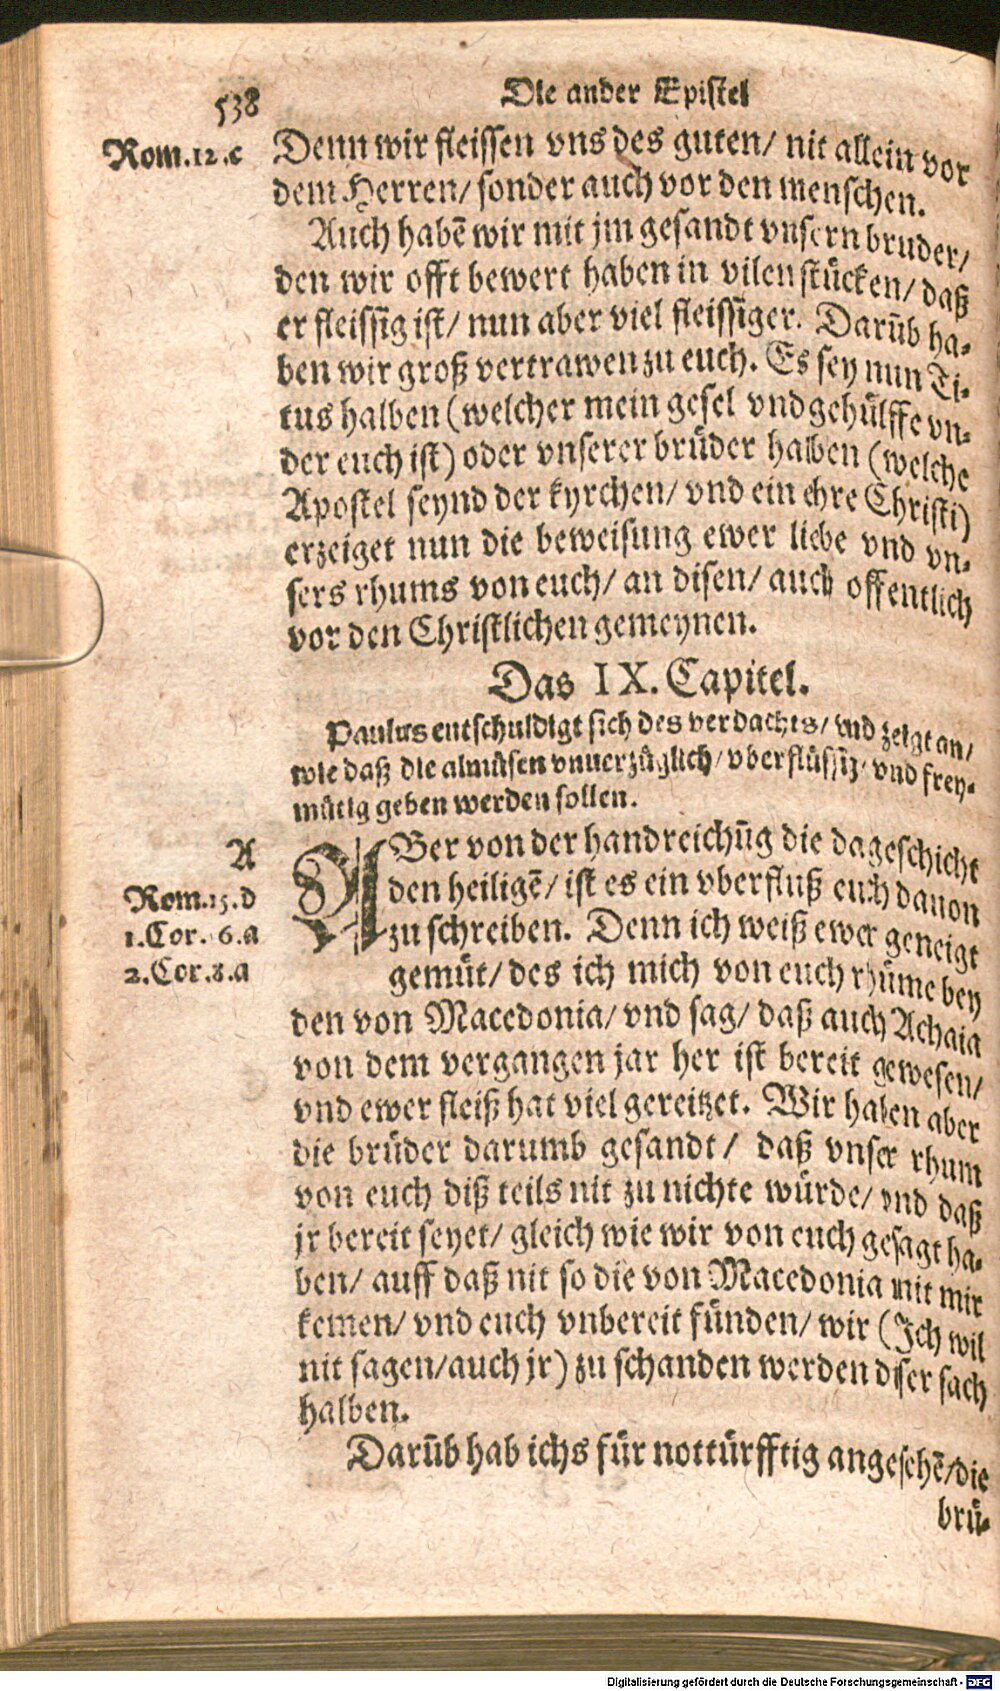 538
Die ander Epistel
Rom.12.c
Denn wir fleissen vns des guten/ nit allein vor
dem Herren/ sonder auch vor den menschen.
Auch habē wir mit jm gesandt vnsern bruder/
den wir offt bewert haben in vilen stücken/ daß
er fleissig ist/ nun aber viel fleissiger. Darūb ha-
ben wir groß vertrawen zu euch. Es sey nun Ti-
tus halben (welcher mein gesel vnd gehülffe vn-
der euch ist) oder vnserer brüder halben (welche
Apostel seynd der kyrchen/ vnd ein ehre Christi)
erzeiget nun die beweisung ewer liebe vnd vn-
sers rhums von euch/ an disen/ auch offentlich
vor den Christlichen gemeynen.
Das IX. Capitel.
Paulus entschuldigt sich des verdachts/ vnd zeigt an/
wie daß die almůsen vnuerzüglich/ vberflüssig/ vnd frey-
mütig geben werden sollen.
A
Rom.15.d
1.Cor. 6.a
2.Cor.8.a
ABer von der handreichūg die da geschicht
den heiligē/ ist es ein vberfluß euch dauon
zu schreiben. Denn ich weiß ewer geneigt
gemüt/ des ich mich von euch rhüme bey
den von Macedonia/ vnd sag/ daß auch Achaia
von dem vergangen jar her ist bereit gewesen/
vnd ewer fleiß hat viel gereitzet. Wir haben aber
die brüder darumb gesandt/ daß vnser rhum
von euch diß teils nit zu nichte würde/ vnd daß
jr bereit seyet/ gleich wie wir von euch gesagt ha-
ben/ auff daß nit so die von Macedonia mit mir
kemen/ vnd euch vnbereit fünden/ wir (Ich wil
nit sagen/ auch jr) zu schanden werden diser sach
halben.
Darūb hab ichs für nottürfftig angesehē/ die
brü-
Digitalisierung gefördert durch die Deutsche Forschungsgemeinschaft - DFG